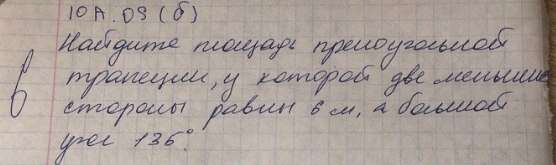 10А.09 (б)
Найдите площадь прямоугольной
трапеции, у которой две меньшие
стороны равны 6 м, а больший
угол 135°.